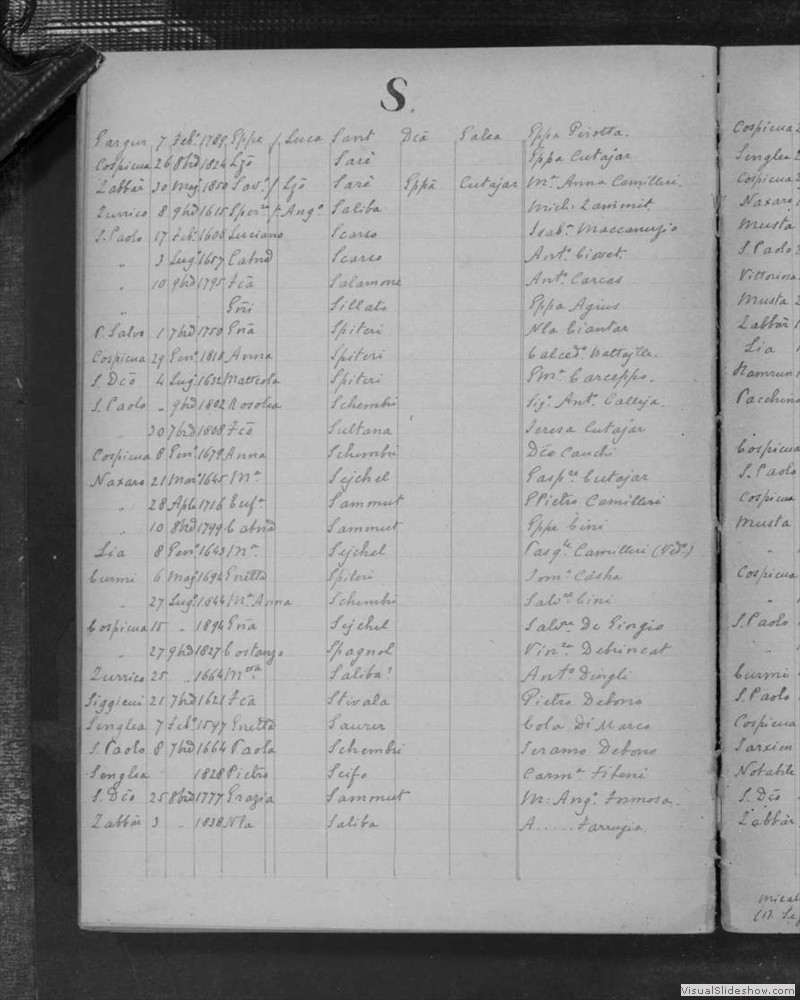 S.
Gargur 7 Feb. 1789 Eppe / Luca Sant Dcã Galea Eppa Pirotta.
Cospicua 26 8bre 1824 Lzõ Sarè Eppa Cutajar
Zabbàr 30 Mag. 1850 Sav. / Lzõ Sarè Eppã Cutajar Mª Anna Camilleri
Zurrico 8 9bre 1615 / Angº Saliba Mich. Zammit
S. Paolo 17 Feb. 1606 Luciano Scarso Isabª
" 3 Lug. 1657 Catnã Scarso Antº
" 10 9bre 1795 Fcã Salamone Antª
" Gñi Sillato Eppa Agius
P. Salvo 1 7bre 1750 Gñã Spiteri Nla Ciantar
Cospicua 29 Gen. 1818 Anna Spiteri
S. Dcõ 4 Lug. 1632 Matteola Spiteri
S. Paolo " 9bre 1802 Rosolea Schembri Sig. Ant. Calleja
30 7bre 1808 Fcõ Sultana Teresa Cutajar
Cospicua 8 Gen. 1679 Anna Schembri Dco Cauchi
Naxaro 21 1645 Mª Sejchel Gaspre Cutajar
" 28 Aple 1716 Eufª Sammut Pietro Camilleri
" 10 8bre 1799 Catnã Sammut Eppe Cini
Lia 8 Gen. 1643 Mª Sejchel Pasqle Camilleri (Vedº)
Curmi 6 Mag. 1694 Gnetta Spiteri
" 27 Lug. 1844 Mª Anna Schembri Salvre Cini
Cospicua 15 " 1894 Gñã Sejchel Salvre De Giorgio
" 27 9bre 1827 Costanzo Spagnol Vinza Debrincat
Zurrico 25 " 1664 Saliba? Antº Dingli
Siggieui 21 7bre 1621 Fcã Stivala Pietro Debono
Senglea 7 Feb. 1597 Gnetta Saurer Cola Di Marco
S. Paolo 8 7bre 1664 Paola Schembri Debono
Senglea 1828 Pietro Scifo Carmª Fiteni
S. Dcõ 25 8bre 1777 Grazia Sammut M. Angº Formosa
Zabbàr 3 " 1838 Nla Saliba A...... Farrugia
Cospicua
Senglea
Cospicua
Naxaro
Musta
S. Paolo
Vittoriosa
Musta
Zabbàr
Lia
Hamrun
Pacchino
Cospicua
S. Paolo
Cospicua
Musta
"
Cospicua
"
S. Paolo
"
Curmi
S. Paolo
Cospicua
Tarxien
Notabile
S. Dcõ
Zabbàr
VisualSlideshow.com